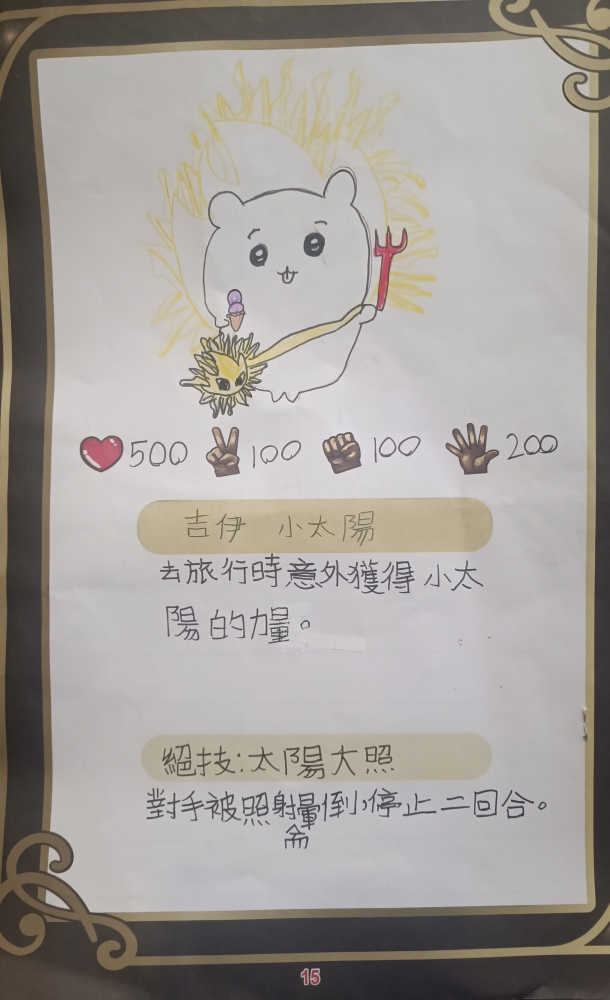 500 100 100 200
吉伊 小太陽
去旅行時意外獲得小太
陽的力量。
絕技:太陽大照
對手被照射暈倒,停止二回合。
15